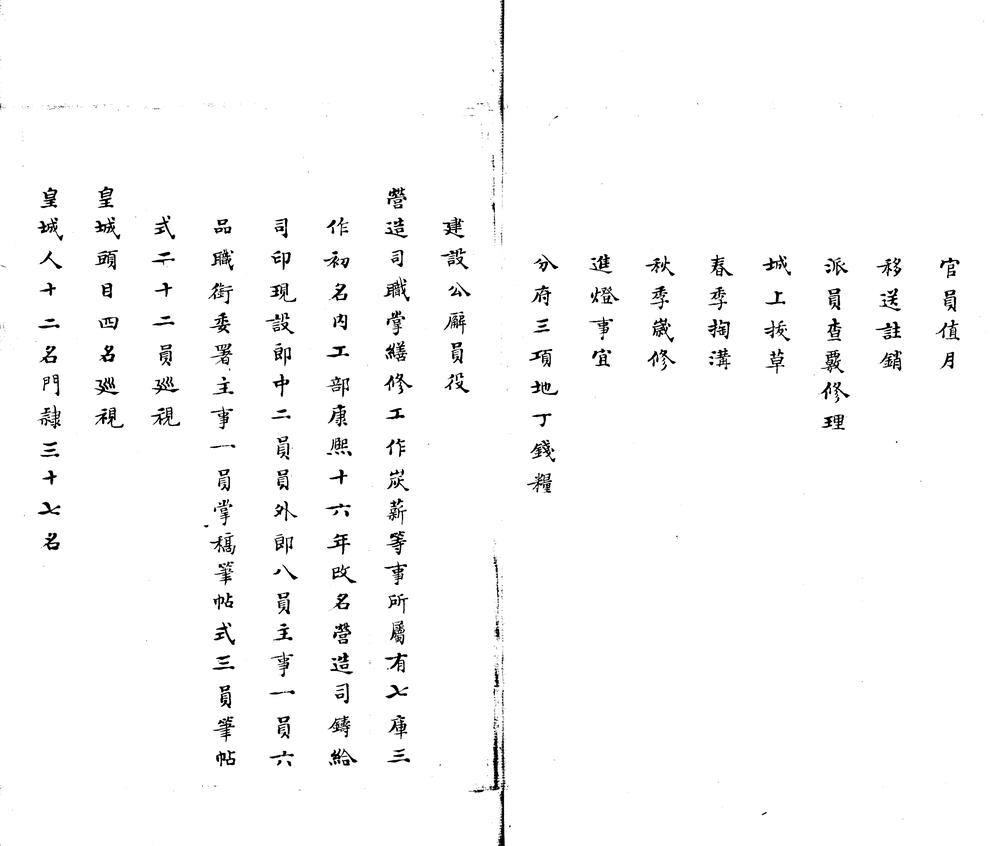 官員值月
移送註銷
派員查覈修理
城上拔草
春季掏溝
秋季歲修
進燈事宜
分府三項地丁錢糧
建設公廨員役
營造司職掌繕修工作炭薪等事所屬有七庫三
作初名內工部康熙十六年改名營造司鑄給
司印現設郎中二員員外郎八員主事一員六
品職銜委署主事一員掌稿筆帖式三員筆帖
式二十二員廵視
皇城頭目四名廵視
皇城人十二名門隸三十七名